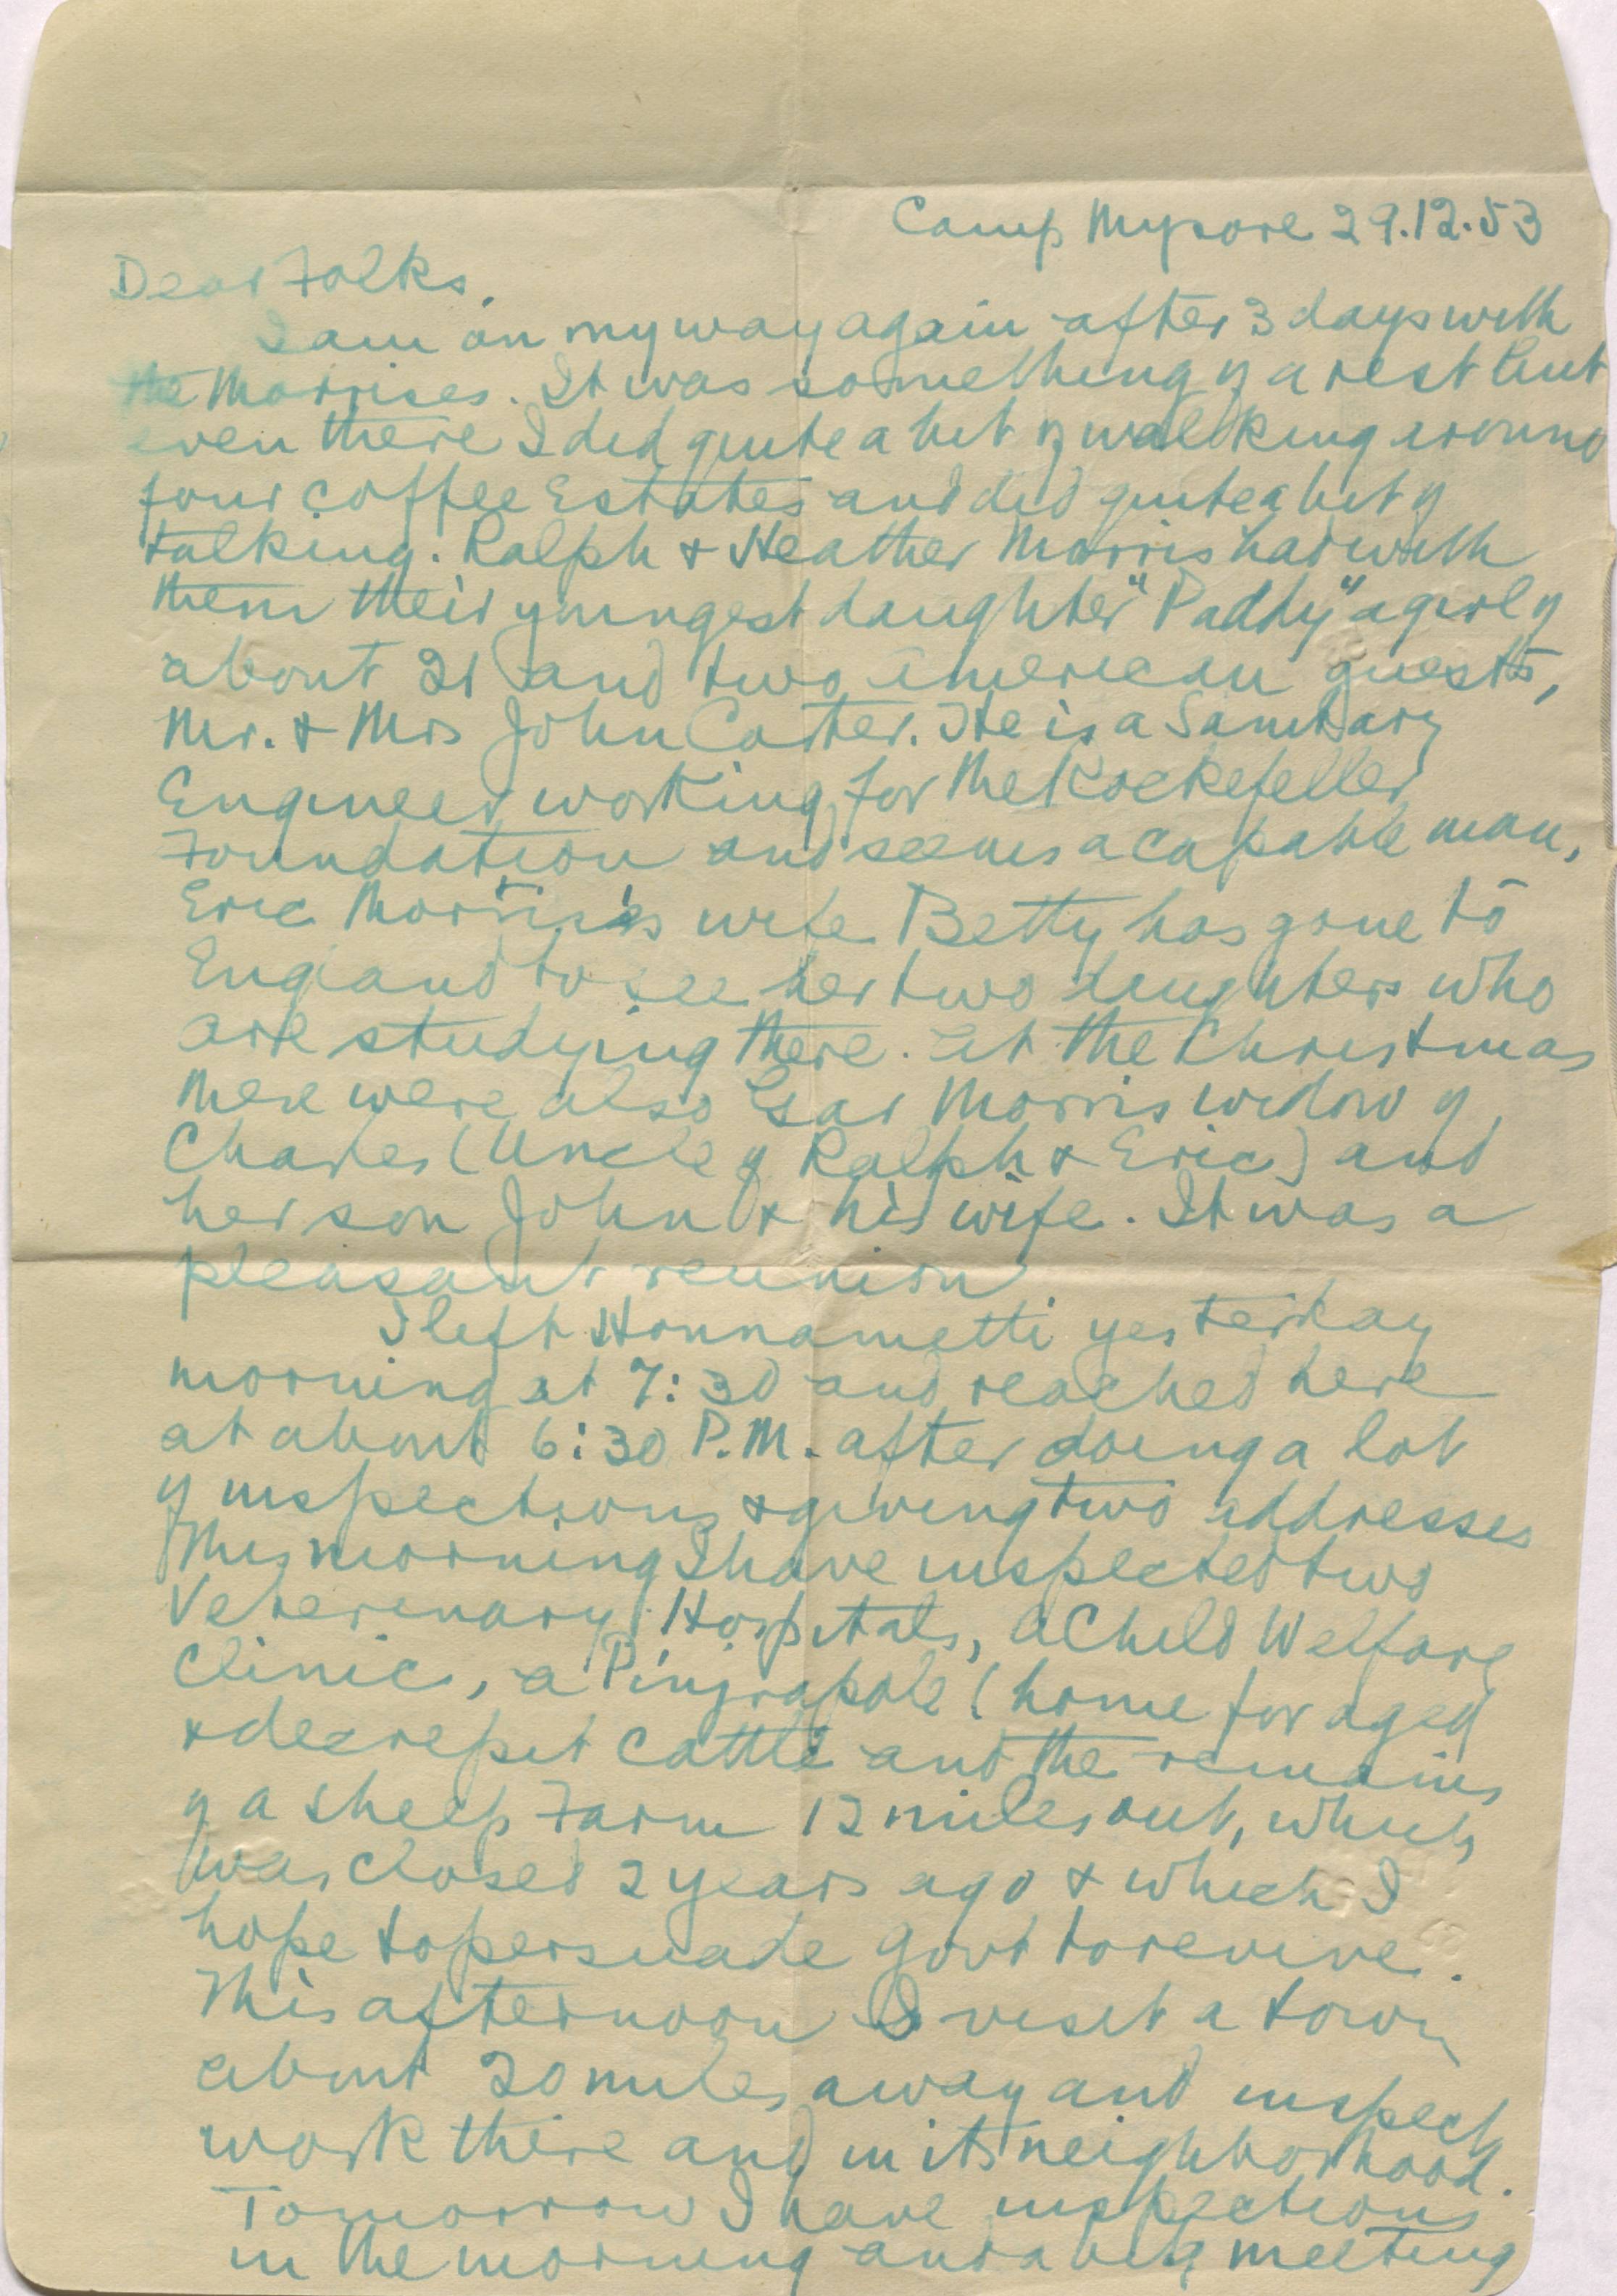 Camp Mysore 29.12.53
Dear Folks,
I am on my way again after 3 days with
the Morrises. It was something of a rest but
even there I did quite a bit of walking around
four coffee Estates and did quite a bit of
talking. Ralph & Heather Morris had with
them their youngest daughter "Paddy" a girl of
about 21 and two American guests,
Mr. & Mrs John Carter. He is a Sanitary
Engineer working for the Rockefeller
Foundation and seems a capable man,
Eric Morris's wife Betty has gone to
England to see her two daughters who
are studying there. At the Christmas
there were also Morris widow of
Charles (Uncle of Ralph & Eric) and
her son John & his wife. It was a
pleasant reunion
I left Honnametti yesterday
morning at 7:30 and reached here
at about 6:30 P.M. after doing a lot
of inspections & giving two addresses
This morning I have inspected two
Veterinary Hospitals, a Child Welfare
Clinic, a Pinjrapole (home for aged
& decrepit cattle and the remains
of a sheep Farm 12 miles out, which
was closed 2 years ago & which I
hope to persuade govt to revive.
This afternoon I visit a town
about 20 miles away and inspect
work there and in its neighborhood.
Tomorrow I have inspections
in the morning and a big meeting